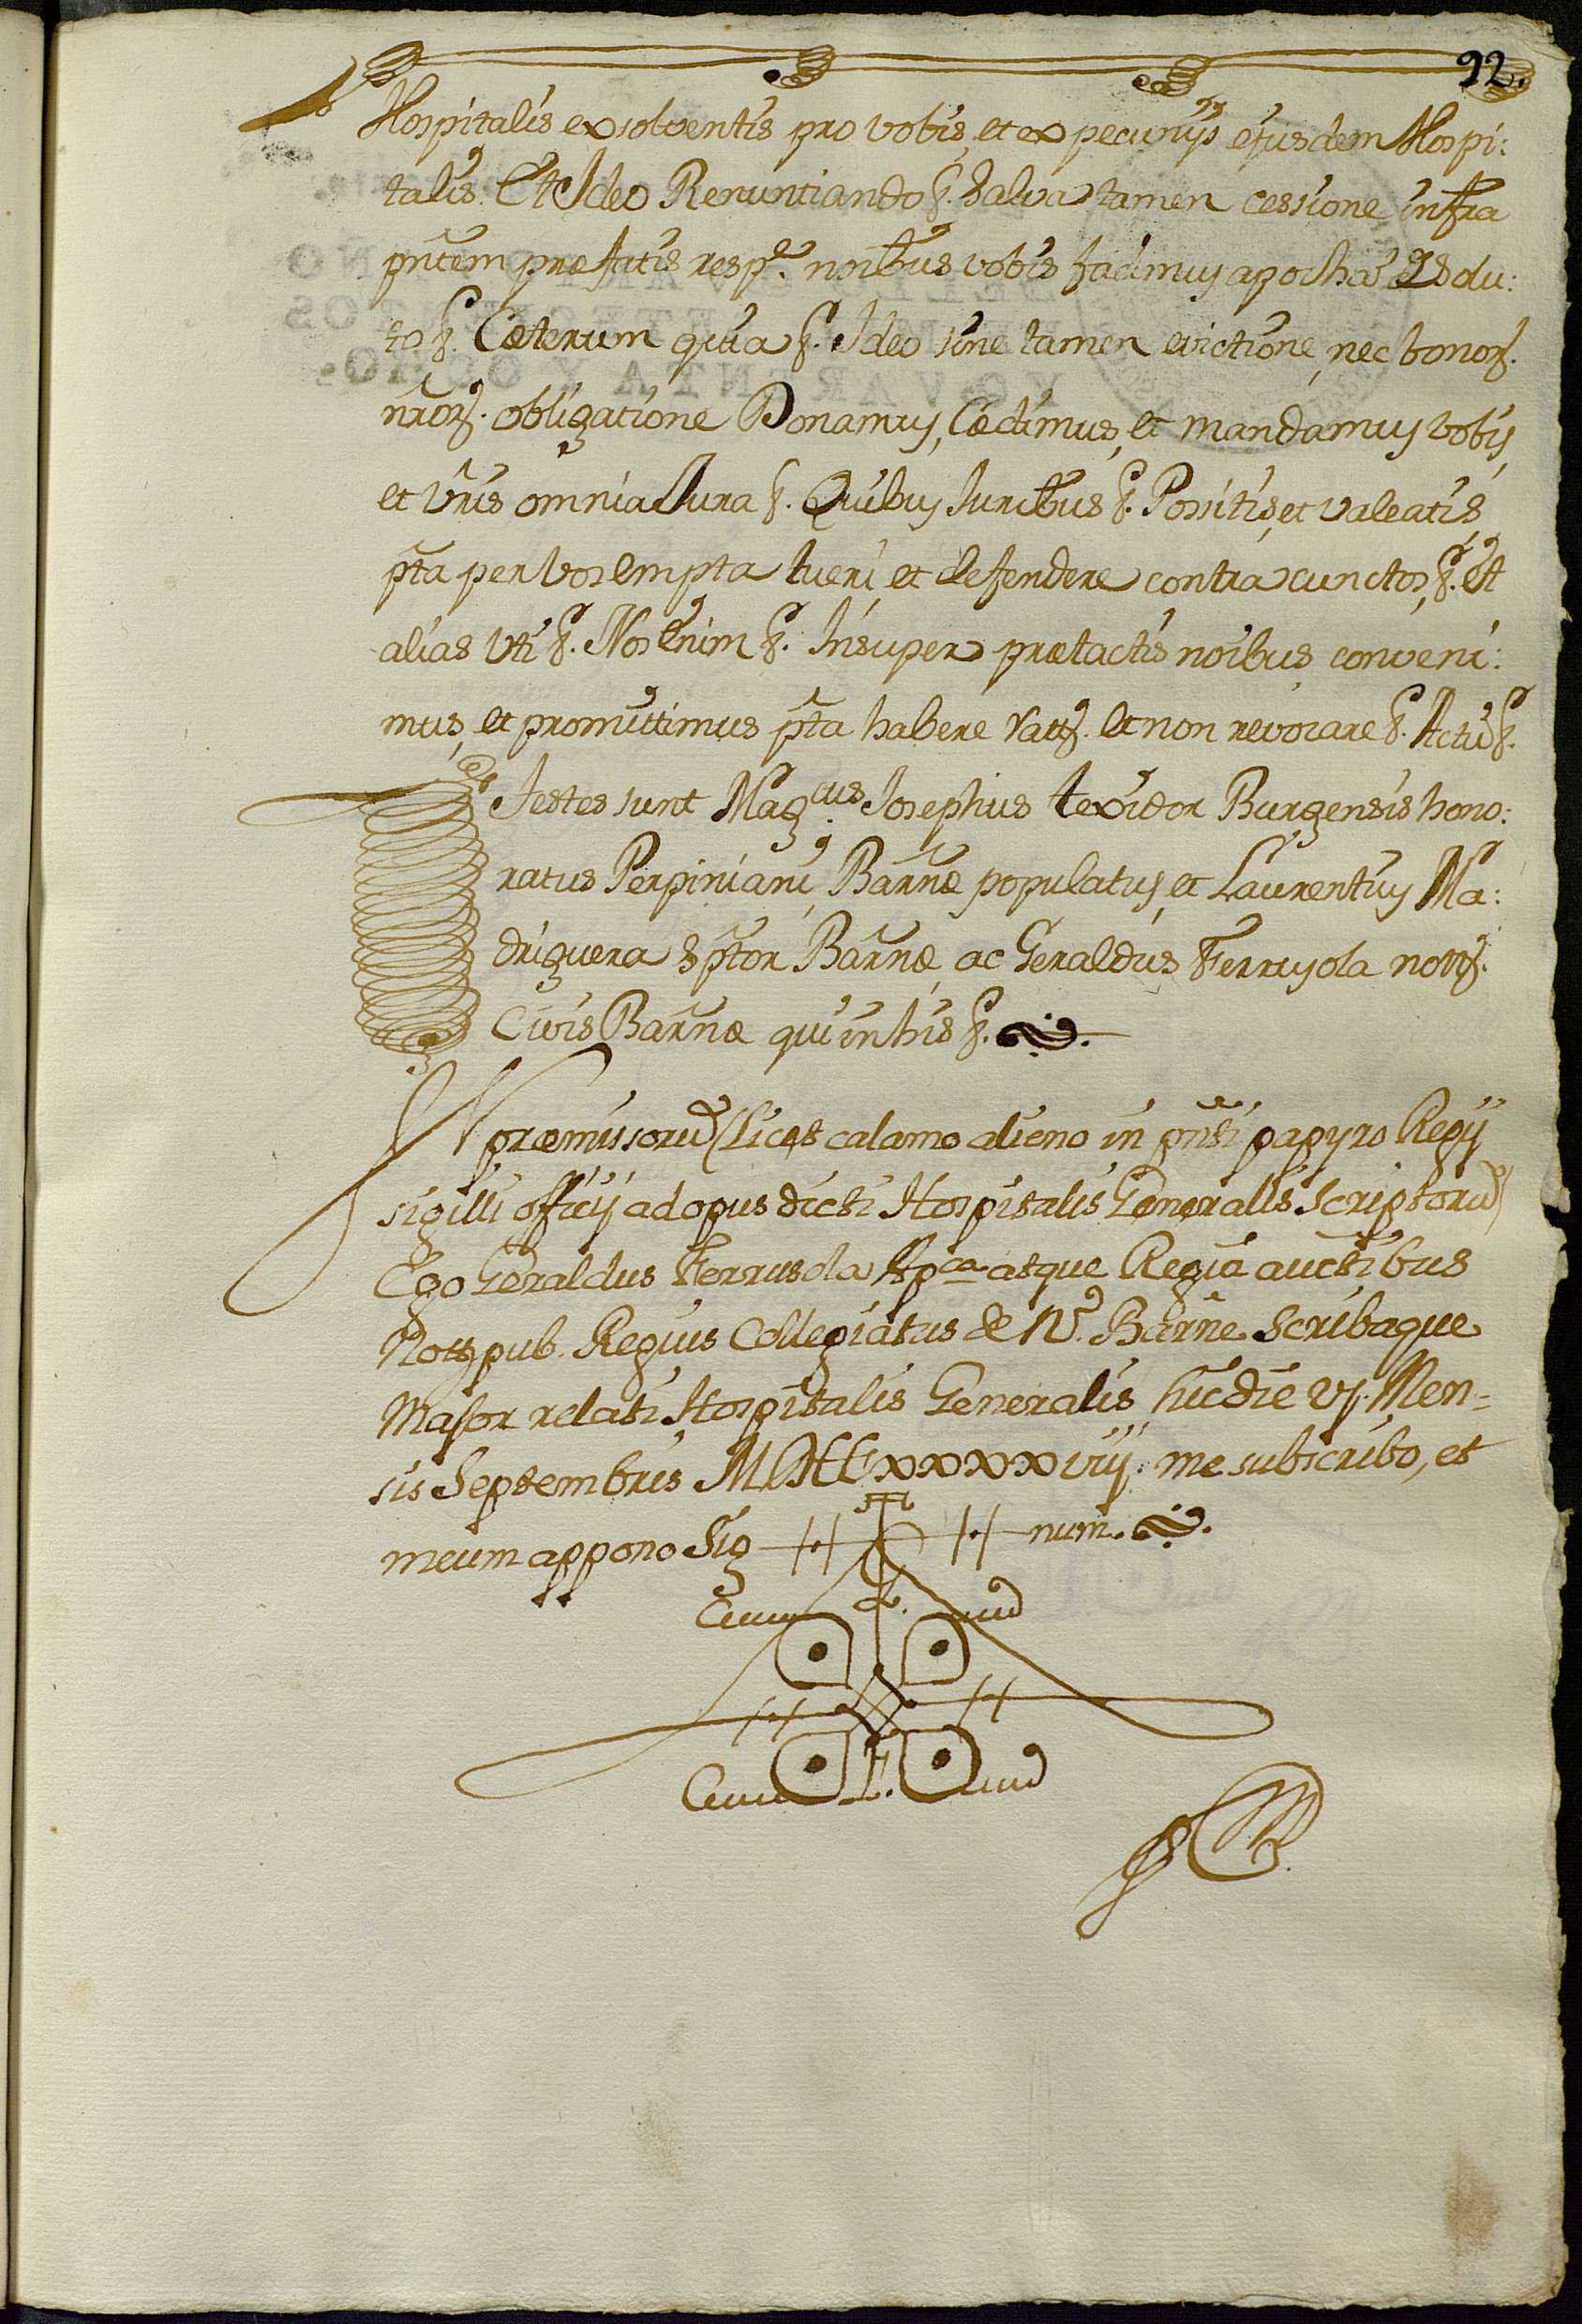 92.
Hospitalis exsolventis pro vobis, et ex pecunijs ejusdem Hospi:
talis. Et Ideo Renuntiando &. Salva tamen cessione infra
pntem præfatis respe. noibus vobis facimus apochã de du:
to &. Cæterum quia &. Ideo sine tamen evictione, nec bonor.
nror. obligatione Donamus, Cædimus, et mandamus vobis,
et vris omnia Jura &. Quibus Juribus &. Possitis, et valeatis,
pta per vos empta tueri, et defendere contra cunctos, &. et
alias Uti &. Nos enim &. Insuper prætactis noibus conveni:
mus, et promittimus pta habere rata. et non revocare &. Actũ &.
Testes sunt Magcus. Josephus texidor Burgensis hono:
ratus Perpiniani, Barnæ populatus, et Laurentius Ma:
driguera sptor Barnæ, ac Geraldus Ferrusola nott.
Civis Barnæ qui in his &.
IN præmissorũ (licet calamo alieno in pnti papyro Regij
sigilli officij ad opus dicti Hospitalis Generalis scriptorũ)
Ego Geraldus Ferrusola Apca. atque Regia auctibus
Nott. pub. Regius Collegiatus de No. Barñe Scribaque
Major relati Hospitalis Generalis hic die vj. Men=
sis Septembris MDCCxxxxviij. me subscribo, et
meum appono Sig num.